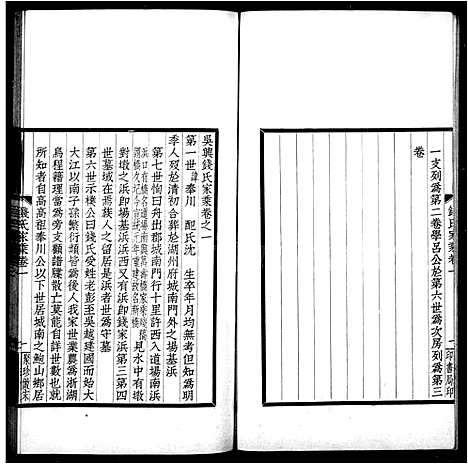 一支列爲第二卷學呂公於第六世爲次房列爲第三
卷
錢氏家乘卷一
吳興錢氏家乘卷之一
第一世諱奉川 配氏沈 生卒年月均無考但知爲明
季人歿於清初合葬於湖州府城南門外之場基浜
第七世恂曰舟出郡城南門行十里許西入道場浜
見水中有墩
對墩之浜即場基浜浜西又有浜即錢家浜第三第四
世墓域在焉族人之留居是浜者尚世爲守墓
第六世示樸公曰錢氏受姓老彭至吳越建國而始大
大江以南子孫繁衍類皆爲後人我家世業農爲湖郡
烏程籍理當爲旁支顧譜牒散亡莫能自詳世數也
所知者自高高祖奉川公以下世居城南之鮑山鄉居
錢氏家乘卷一
一
聚珍倣宋
印書局印